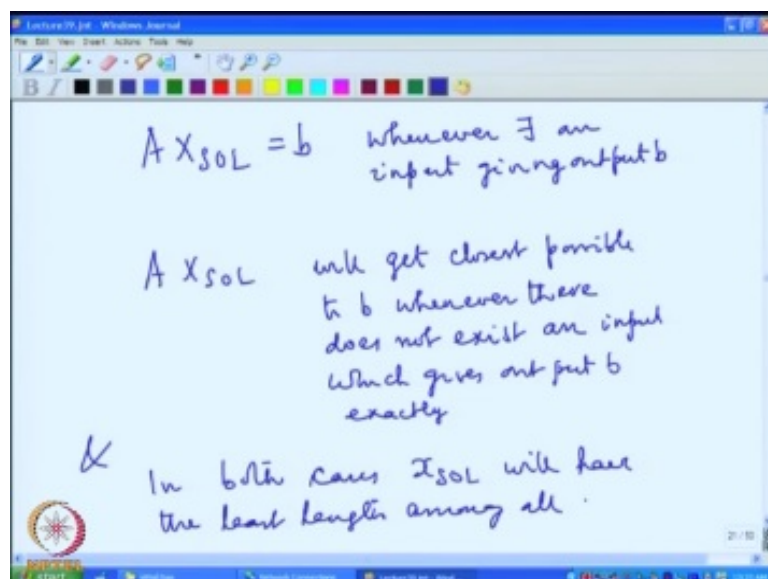 Lecture39.jnt - Windows Journal
File Edit View Insert Actions Tools Help
B I
A X_SOL = b whenever ∃ an
input giving output b
A X_SOL will get closest possible
to b whenever there
does not exist an input
which gives output b
exactly
& In both cases x_SOL will have
the least length among all .
21/50
start